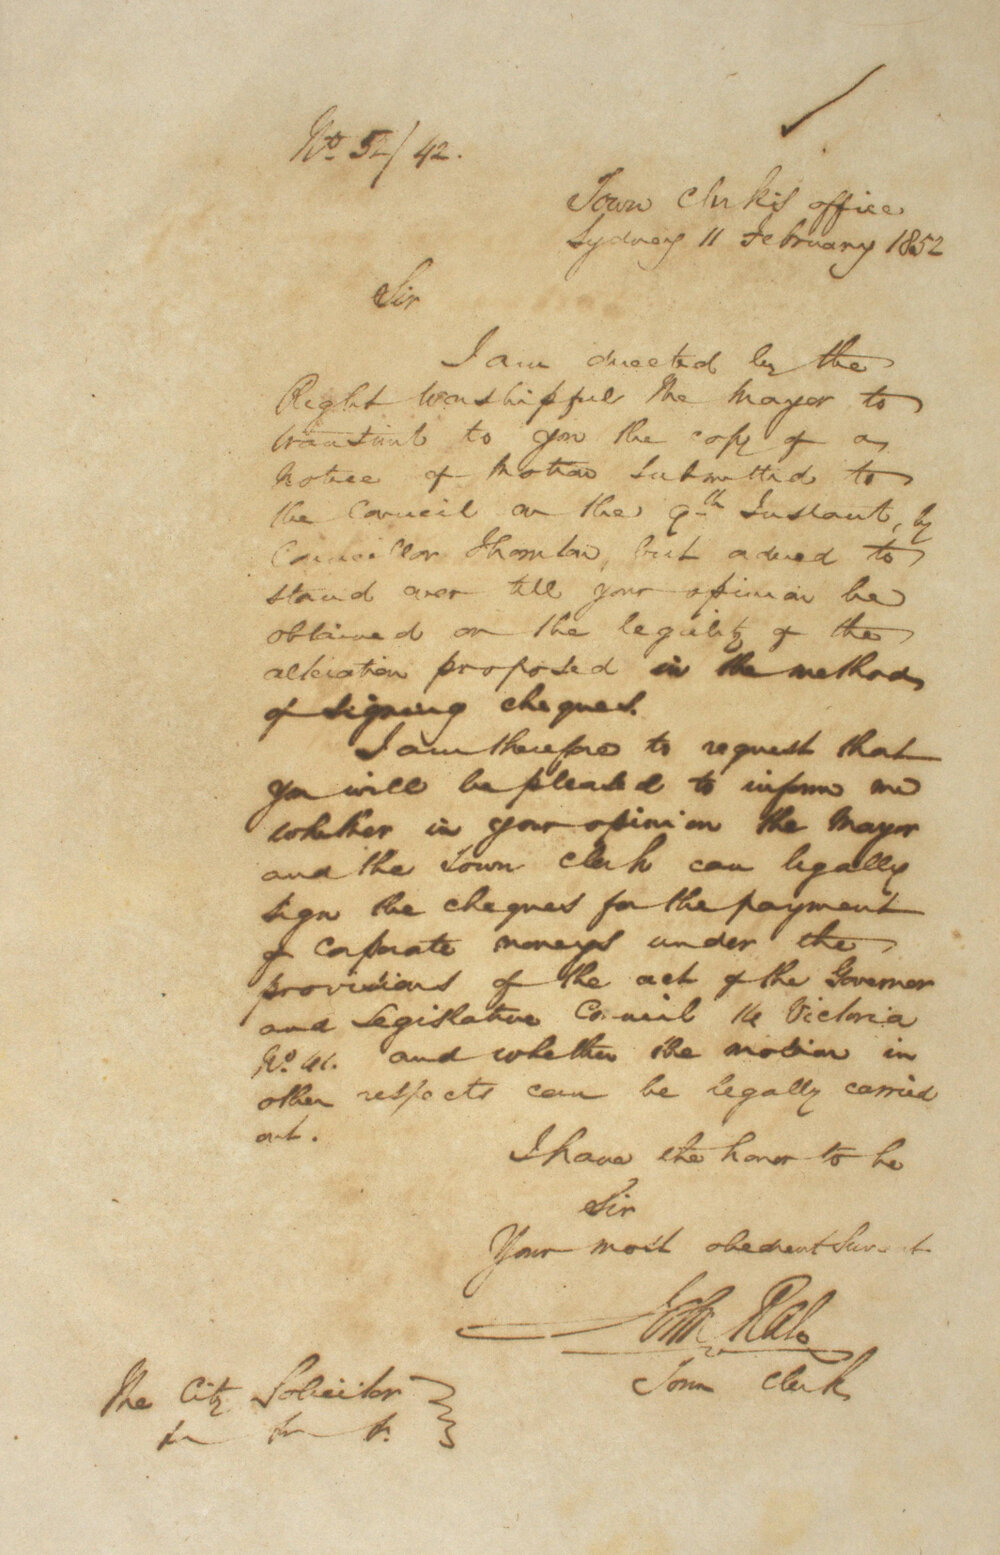 No 52/42.
Town Clerk's office
Sydney 11 February 1852
Sir
I am directed by the
Right Worshipful the Mayor to
transmit to you the copy of a
Notice of Motion submitted to
the Council on the 9th Instant, by
Councillor Thornton, but ordered to
stand over till your opinion be
obtained on the legality of the
alteration proposed in the method
of signing cheques.
I am therefore to request that
you will be pleased to inform me
whether in your opinion the Mayor
and the Town Clerk can legally
sign the cheques for the payment
of corporate moneys under the
provisions of the act of the Governor
and Legislative Council 14 Victoria
No. 41. and whether the motion in
other respects can be legally carried
out.
I have the honor to be
Sir
Your most obedient Servant
John Rae
Town Clerk
The City Solicitor